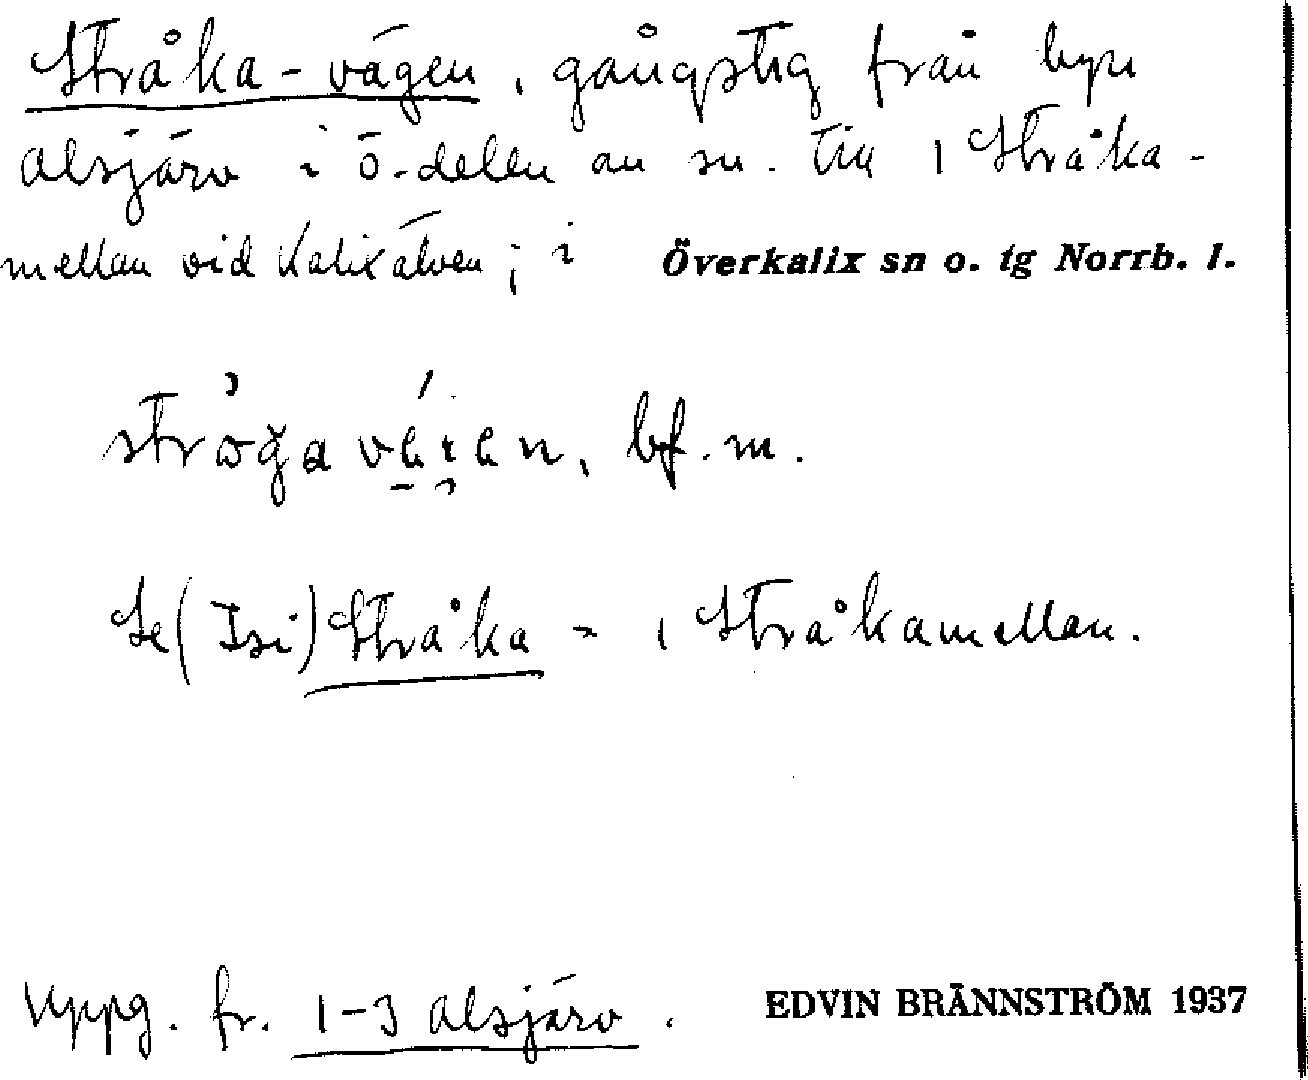 Stråka-vägen, gångstig från byn
Alsjärv i ö.-delen av sn. till 1 Stråka-
mellan vid Kalixälven; i Överkalix sn o. tg Norrb. l.
bf. m.
Se (Isi) Stråka = 1 Stråkamellan.
Uppg. fr. 1-3 Alsjärv.
EDVIN BRÄNNSTRÖM 1937